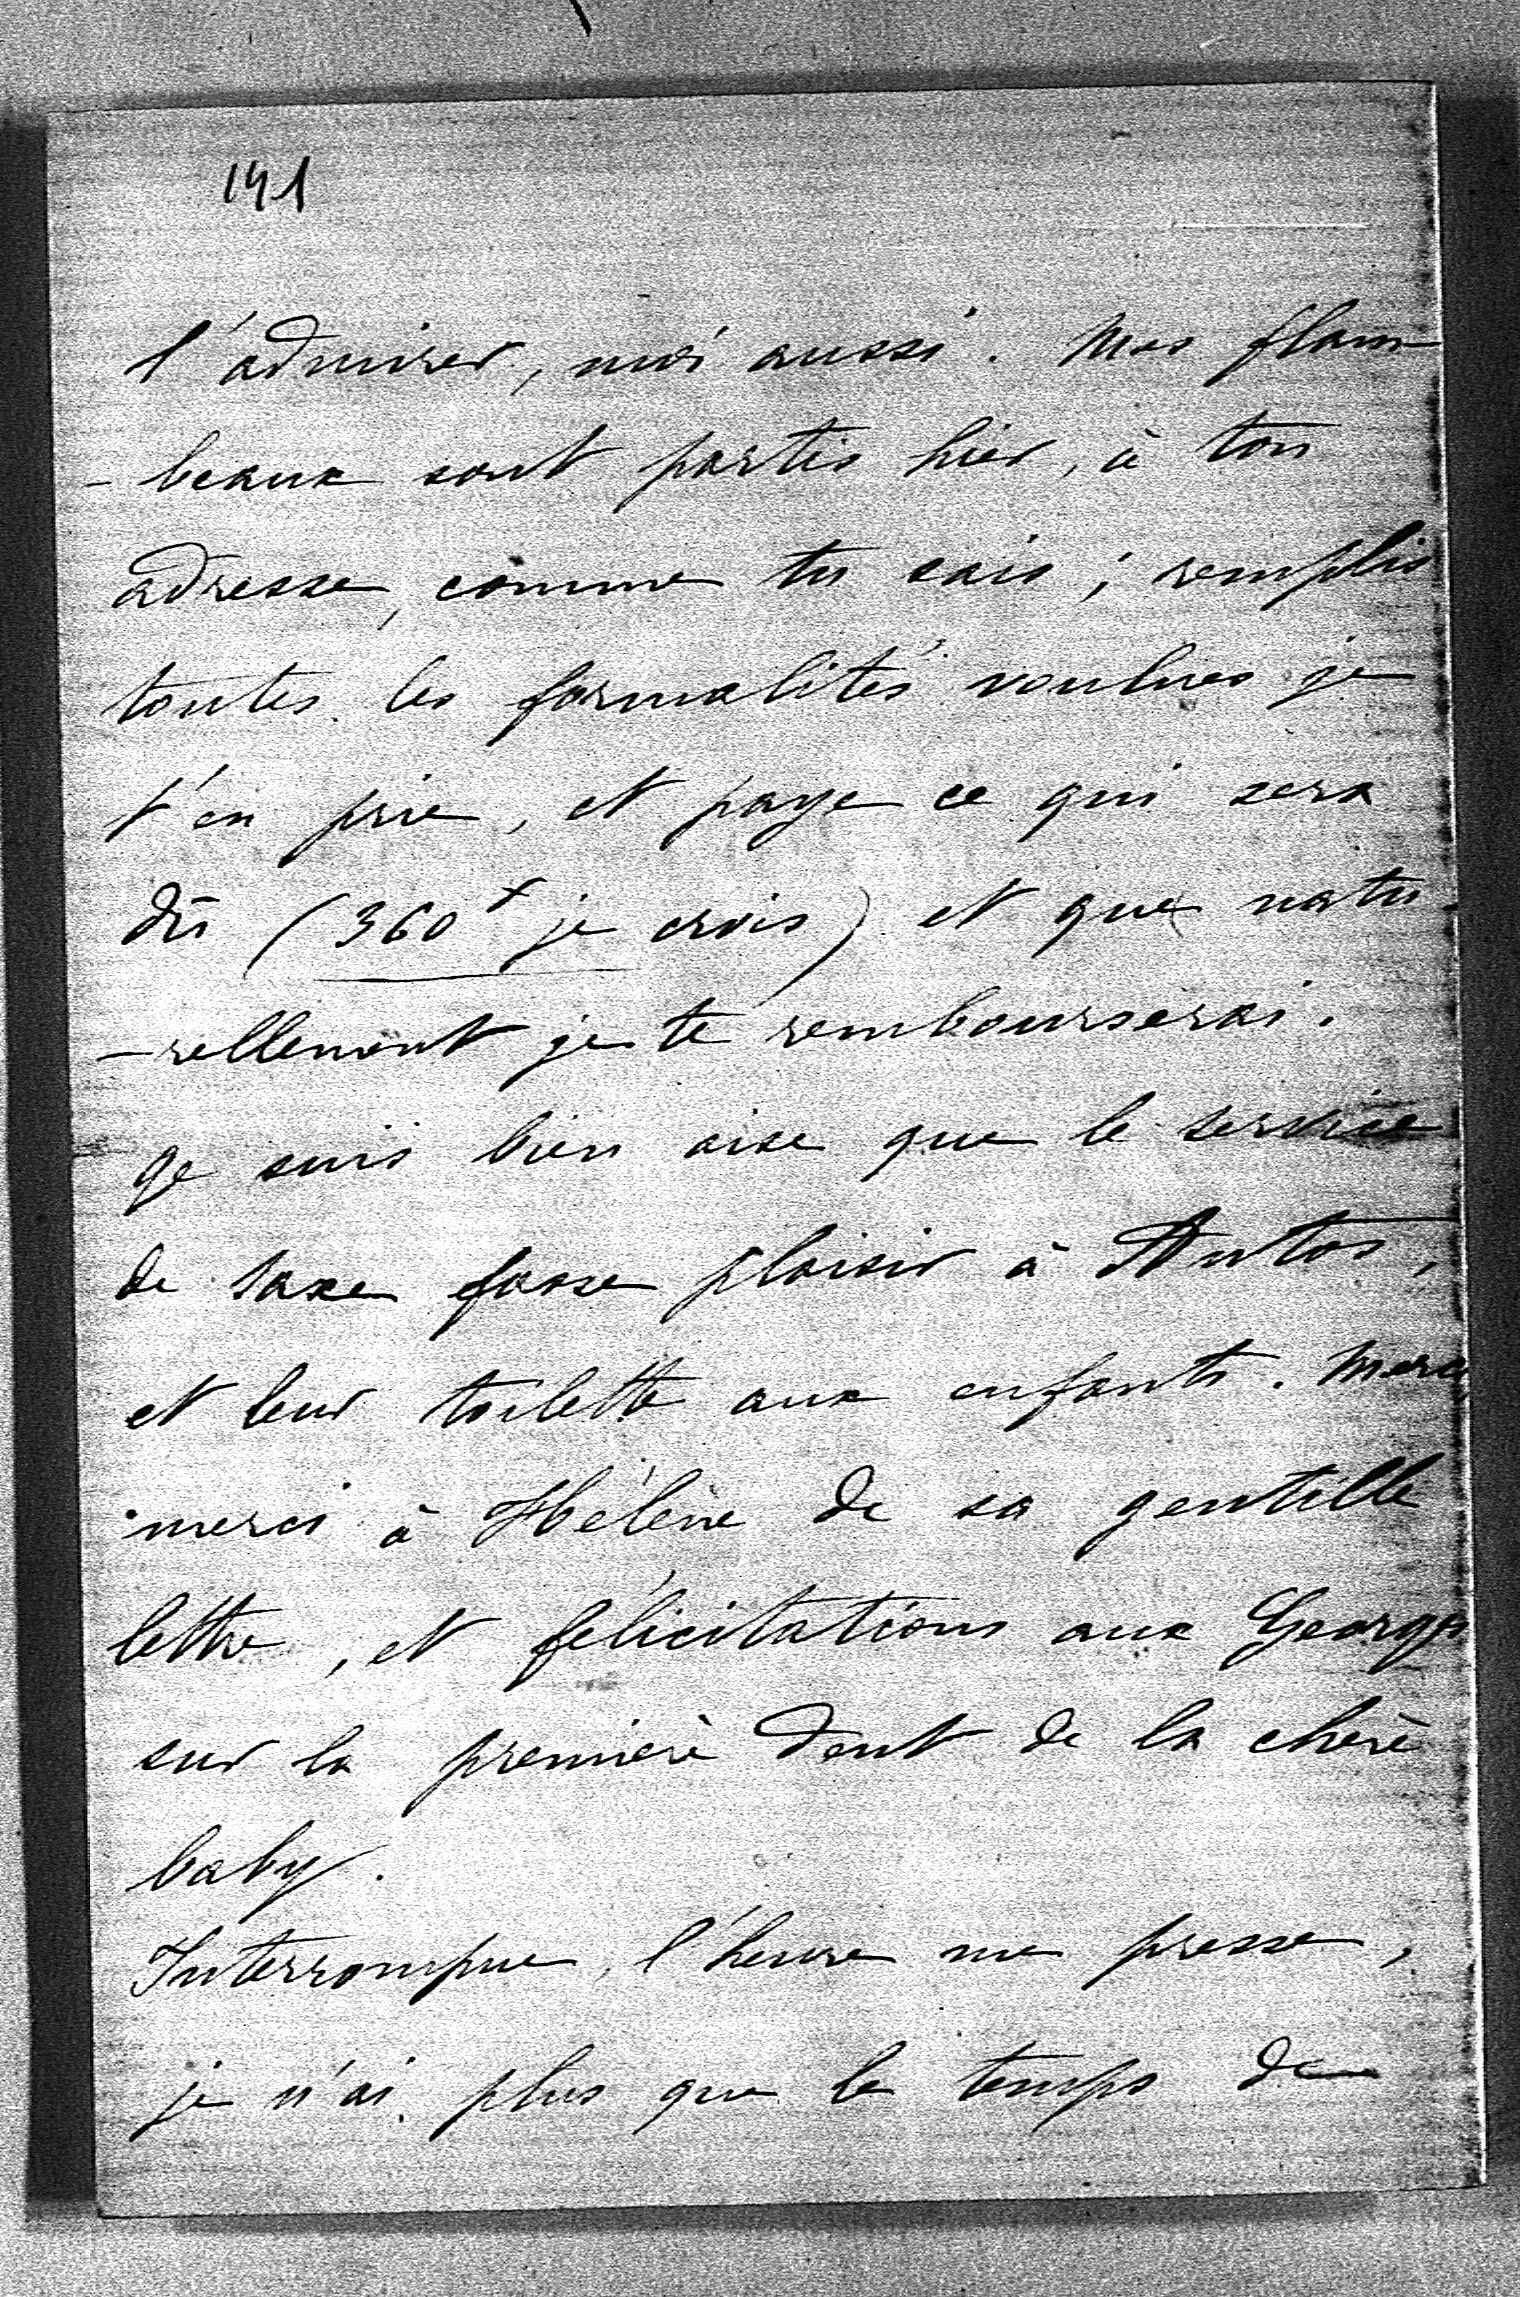 141
l'admirer, moi aussi. Mes flam-
-beaux sont partis hier, à ton
adresse, comme tu sais ; remplis
toutes les formalités voulues je
t'en prie, et paye ce qui sera
dû (360f je crois) et que natu-
-rellement je te rembourserai.
Je suis bien aise que le service
de saxe fasse plaisir à Antos,
et leur toilette aux enfants. Merci,
merci à Hélène de sa gentille
lettre, et félicitations aux Georges
sur la première dent de la chère
baby.
Interrompue, l'heure me presse,
je n'ai plus que le temps de